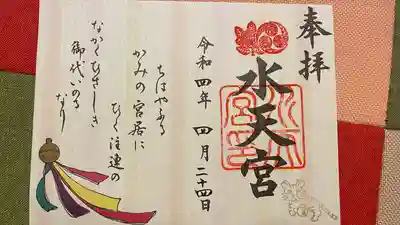 奉拝
水天宮
令和四年 四月二十四日
ちはやふる
かみの宮居に
ひく注連の
ながくひさしき
御代いのる
なり